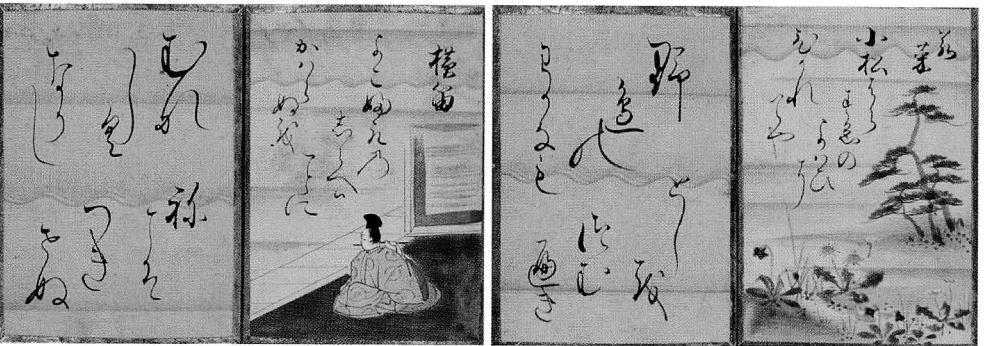 若菜
小松はら
すゑの
よはひに
ひかれ
てや
野邊の
わかなも
としを
つむ
へき
横笛
よこふえの
しらへは
ことに
かはらぬを
むな
しく
なりし
ねこそ
つき
せぬ